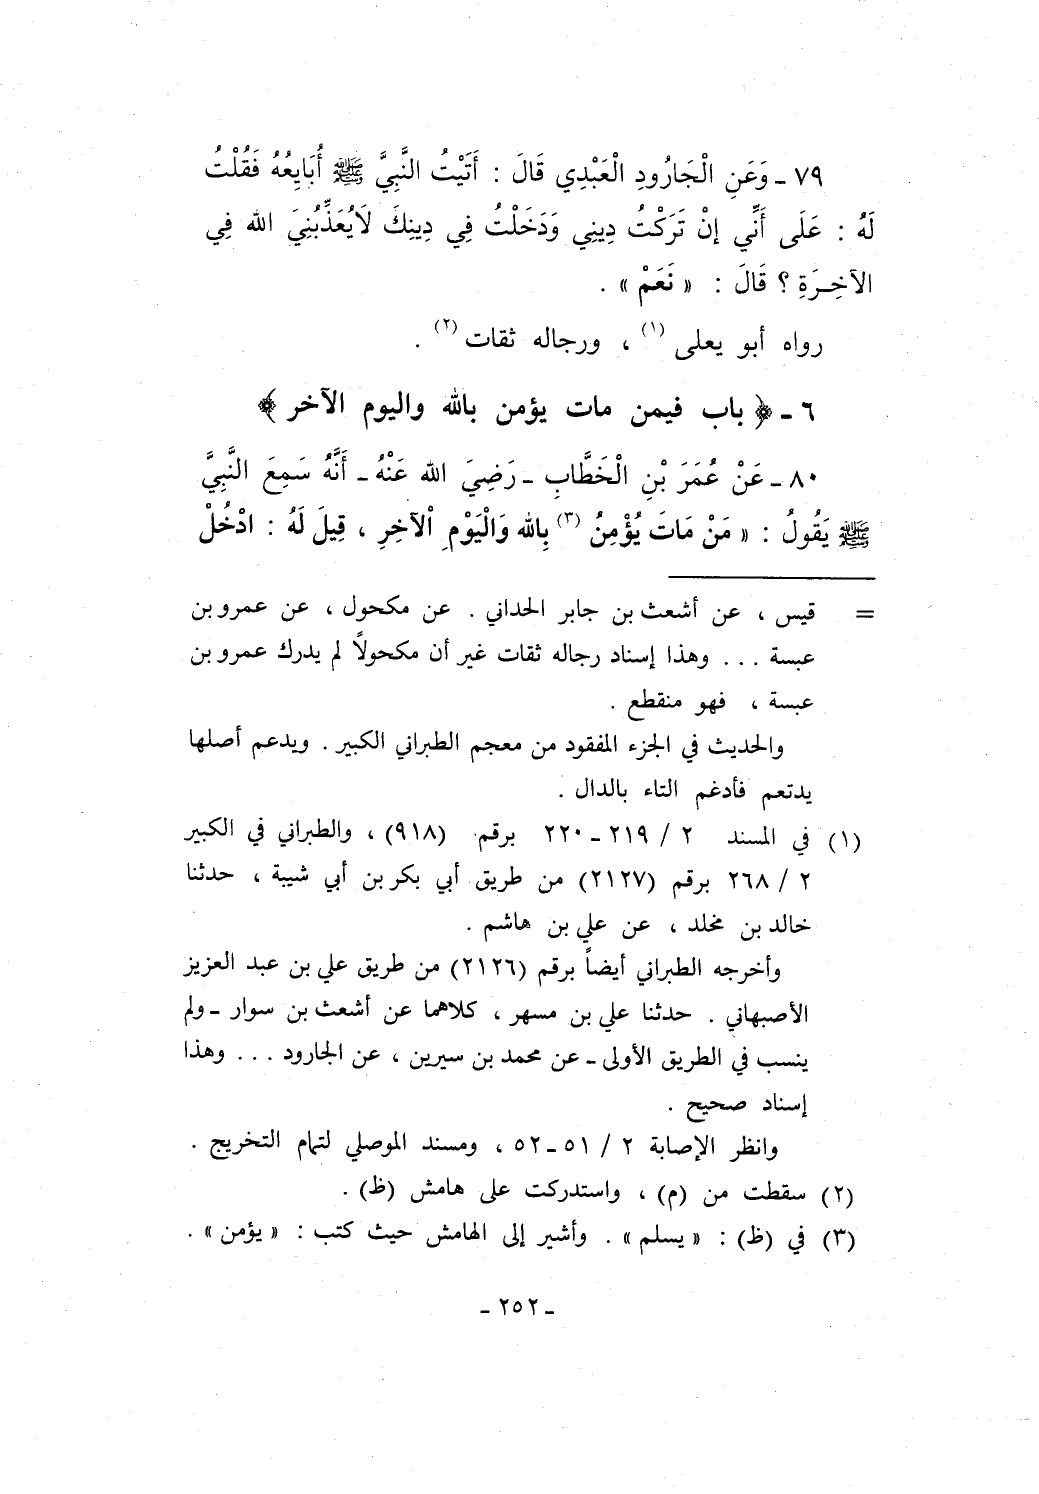 ٧٩ ـ وَعَنِ الْجَارُودِ الْعَبْدِي قَالَ : أَتَيْتُ النَّبِيَّ ﷺ أُبَايِعُهُ فَقُلْتُ
لَهُ : عَلَى أَنِّي إنْ تَرَكْتُ دِينِي وَدَخَلْتُ فِي دِينِكَ لَايُعَذِّبُنِيَ الله فِي
الآخِرَةِ ؟ قَالَ : « نَعَمْ » .
رواه أبو يعلى (١) ، ورجاله ثقات (٢) .
٦ ـ ﴿ باب فيمن مات يؤمن بالله واليوم الآخر ﴾
٨٠ ـ عَنْ عُمَرَ بْنِ الْخَطَّابِ ـ رَضِيَ الله عَنْهُ ـ أَنَّهُ سَمِعَ النَّبِيَّ
ﷺ يَقُولُ : « مَنْ مَاتَ يُؤْمِنُ (٣) بِالله وَالْيَوْمِ اْلآخِرِ ، قِيلَ لَهُ : ادْخُلْ
= قيس ، عن أشعث بن جابر الحداني . عن مكحول ، عن عمرو بن
عبسة ... وهذا إسناد رجاله ثقات غير أن مكحولاً لم يدرك عمرو بن
عبسة ، فهو منقطع .
والحديث في الجزء المفقود من معجم الطبراني الكبير . ويدعم أصلها
يدتعم فأدغم التاء بالدال .
(١) في المسند ٢ / ٢١٩ ـ ٢٢٠ برقم (٩١٨) ، والطبراني في الكبير
٢ / ٢٦٨ برقم (٢١٢٧) من طريق أبي بكر بن أبي شيبة ، حدثنا
خالد بن مخلد ، عن علي بن هاشم .
وأخرجه الطبراني أيضاً برقم (٢١٢٦) من طريق علي بن عبد العزيز
الأصبهاني . حدثنا علي بن مسهر ، كلاهما عن أشعث بن سوار ـ ولم
ينسب في الطريق الأولى ـ عن محمد بن سيرين ، عن الجارود ... وهذا
إسناد صحيح .
وانظر الإصابة ٢ / ٥١ ـ ٥٢ ، ومسند الموصلي لتمام التخريج .
(٢) سقطت من (م) ، واستدركت على هامش (ظ) .
(٣) في (ظ) : « يسلم » . وأشير إلى الهامش حيث كتب : « يؤمن » .
ـ ٢٥٢ ـ